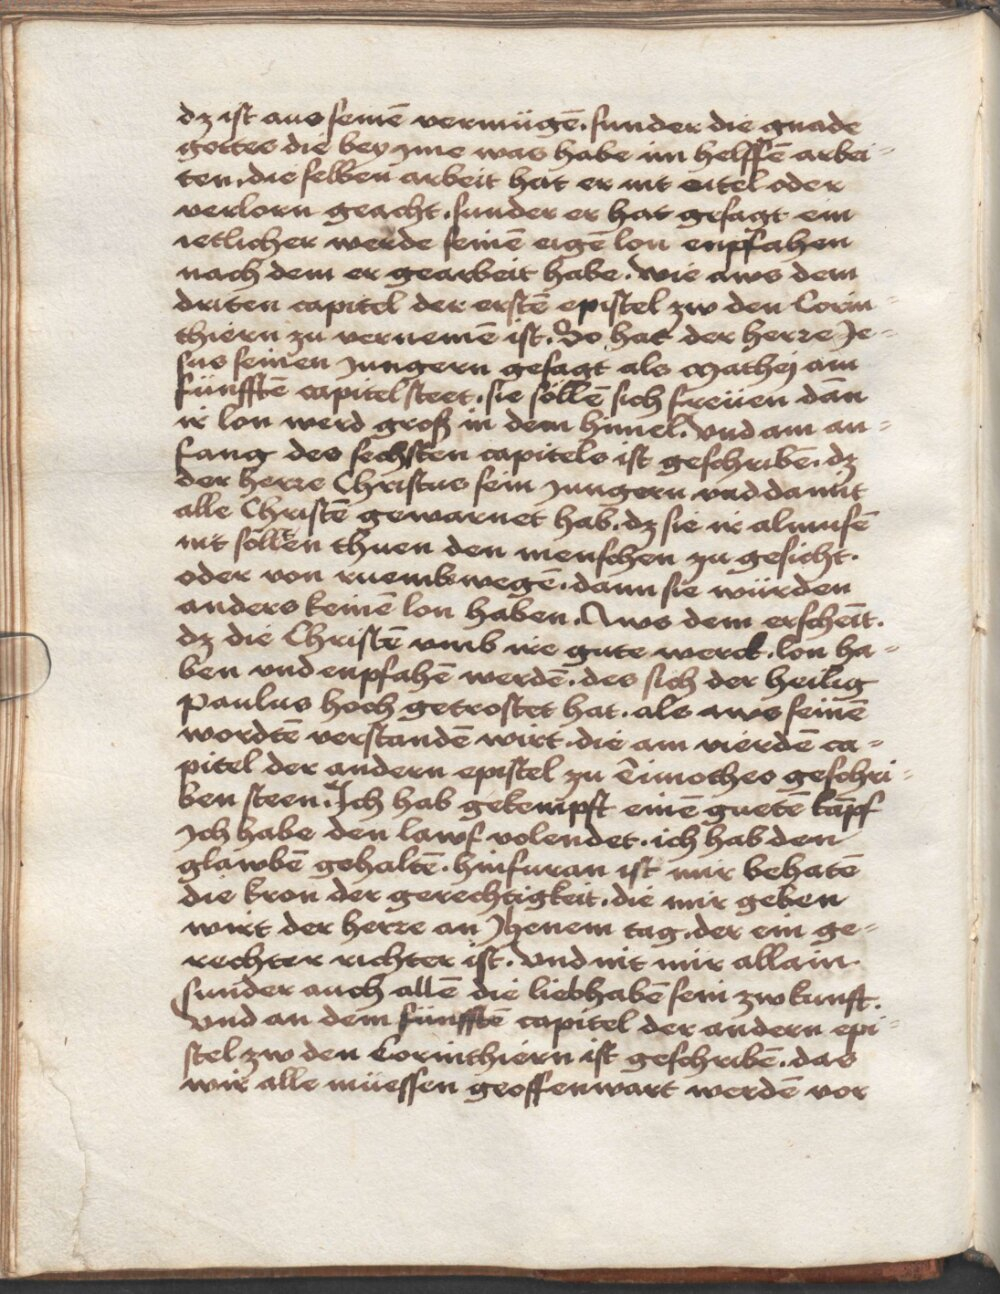 dz ist aus seinē vermügē. sunder die gnade
gottes die bey jme was habe im helffē arbei-
ten. die selben arbeit hat er nit eitel oder
verlorn geacht. sunder er hat gesagt ein
ietlicher werde seinē eigē lon enpfahen
nach dem er gearbeit habe. wie aws dem
driten capitel der erstē epistel zw den Corin-
thiern zu vernemē ist. Do hat der herre Je-
sus seinen jungern gesagt als Mathej am
fünfftē capitel steet. sie söllē sich freüen dān
ir lon werd groß in dem himel. Vnd am an-
fang des sechsten capitels ist geschribē. dz
der herre Christus sein jungern vnd damit
alle Christē gewarnet hab. dz sie ir almusē
nit söllten thuen den menschen zu gesicht.
oder von ruembswegē. dann sie würden
anders keinē lon haben. Aws dem erscheīt.
dz die Christē vmb ire gute werck. lon ha-
ben vnd enpfahē werdē. des sich der heilig
Paulus hoch getrostet hat. als aws seinē
wordtē verstandē wirt. die am vierdē ca-
pitel der andern epistel zu Timotheo geschri-
ben steen. Ich hab gekempft einē guetē kāpf
Ich habe den lawf volendet. ich hab den
glawbē gehaltē. hinfuran ist mir behatē
die kron der gerechtigkeit. die mir geben
wirt der herre an Jhenem tag. der ein ge-
rechter richter ist. Vnd nit mir allain.
sunder auch allē die liebhabē sein zwkunft.
Vnd an dem fünfftē capitel der andern epi-
stel zw den Corinthiern ist geschribē. das
wir alle müessen geoffenwart werdē vor